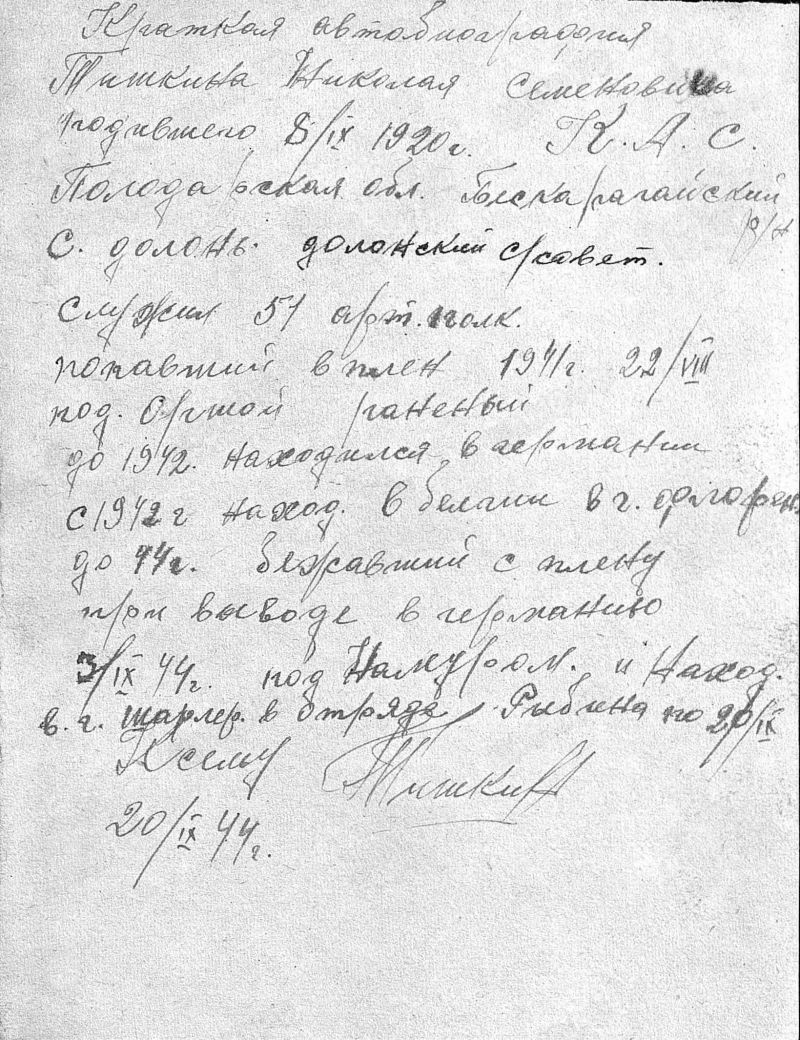 Краткая автобиография
Тишкина Николая Семеновича
родившего 8/IX 1920г. К. А. С.
Полодарская обл. Бескарагайский
р/н
С. долонь. долонский с/совет.
служил 51 арт. полк.
попавший в плен 1941г. 22/VIII
под. Оршой раненый
до 1942. находился в германии
с 1942г наход. в белгии в г.
до 44г. бежавший с плену
при выводе в германию
3/IX 44г. под Намуром. и наход.
в. г. шарлер. в отряде Рыбина по 20/IX
К сему Тишкин
20/IX 44г.